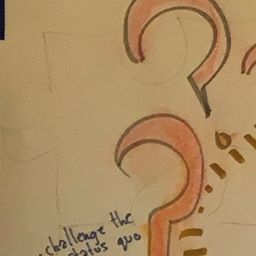 challenge the
status quo